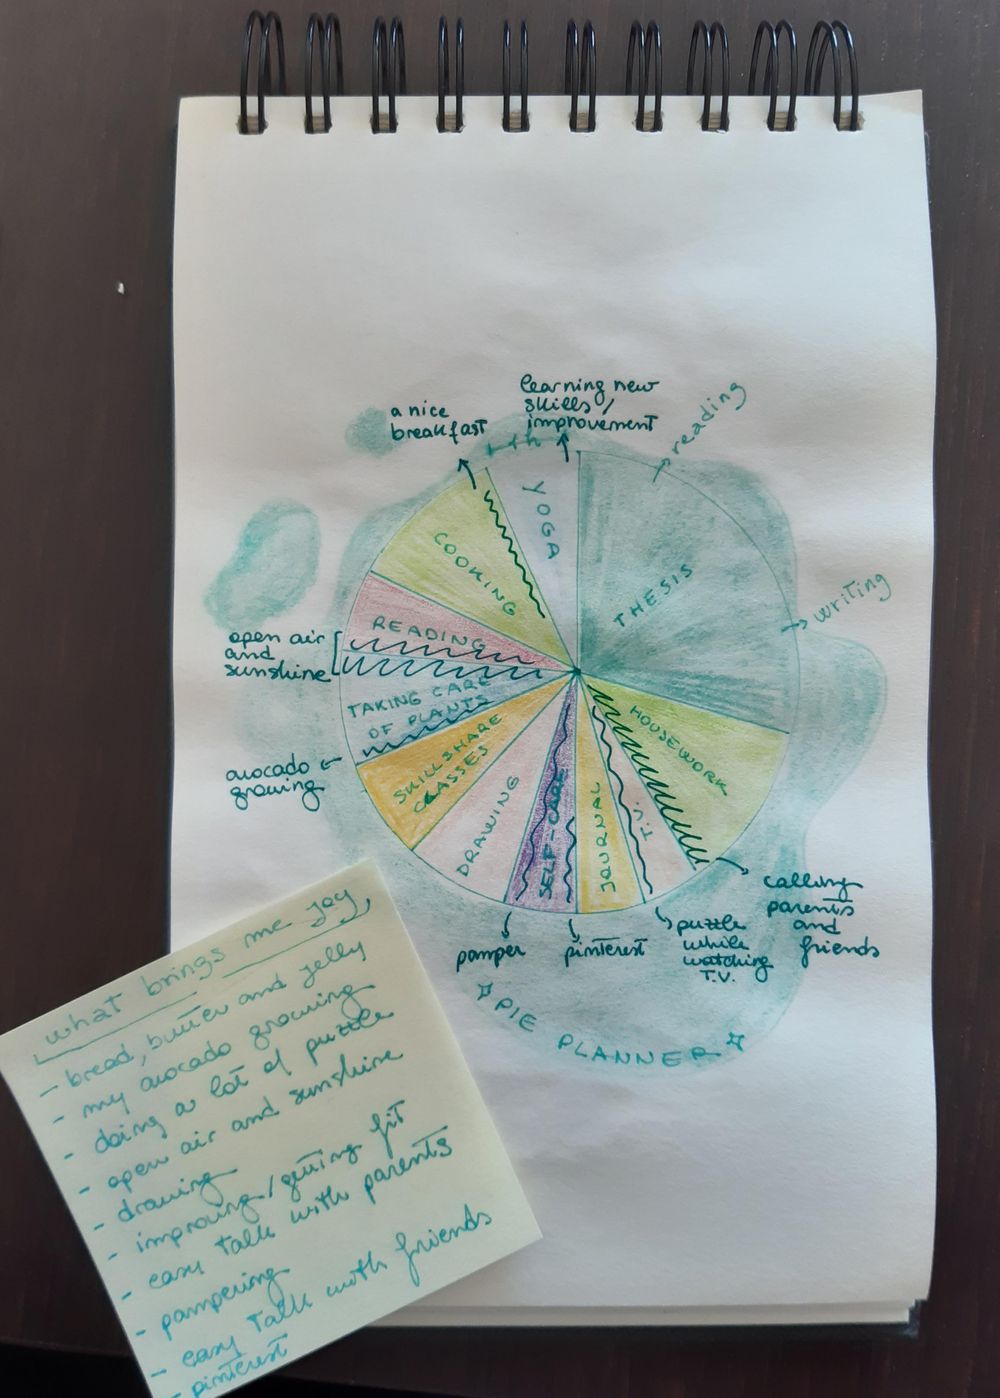 a nice
breakfast
learning new
skills/
improvement
reading
writing
1+h
YOGA
COOKING
READING
open air
and
sunshine
TAKING CARE
OF PLANTS
avocado
growing
SKILLSHARE
CLASSES
DRAWING
SELF-CARE
JOURNAL
T.V.
HOUSEWORK
THESIS
pamper
pinterest
puzzle
while
watching
T.V.
calling
parents
and
friends
PIE PLANNER
what brings me joy
- bread, butter and jelly
- my avocado growing
- doing a lot of puzzle
- open air and sunshine
- drawing
- improving/getting fit
- easy talk with parents
- pampering
- easy talk with friends
- pinterest